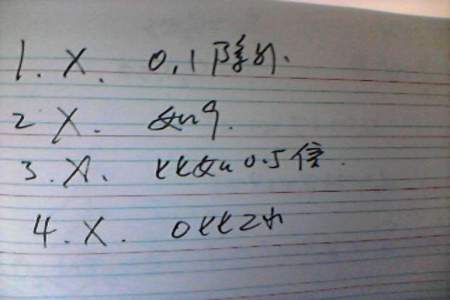 1. X. 0,1除外.
2 X. 如9.
3. X. 比如0.5倍.
4. X. 0比2小